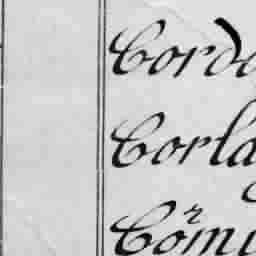 Cordo
Corla
Com̃i